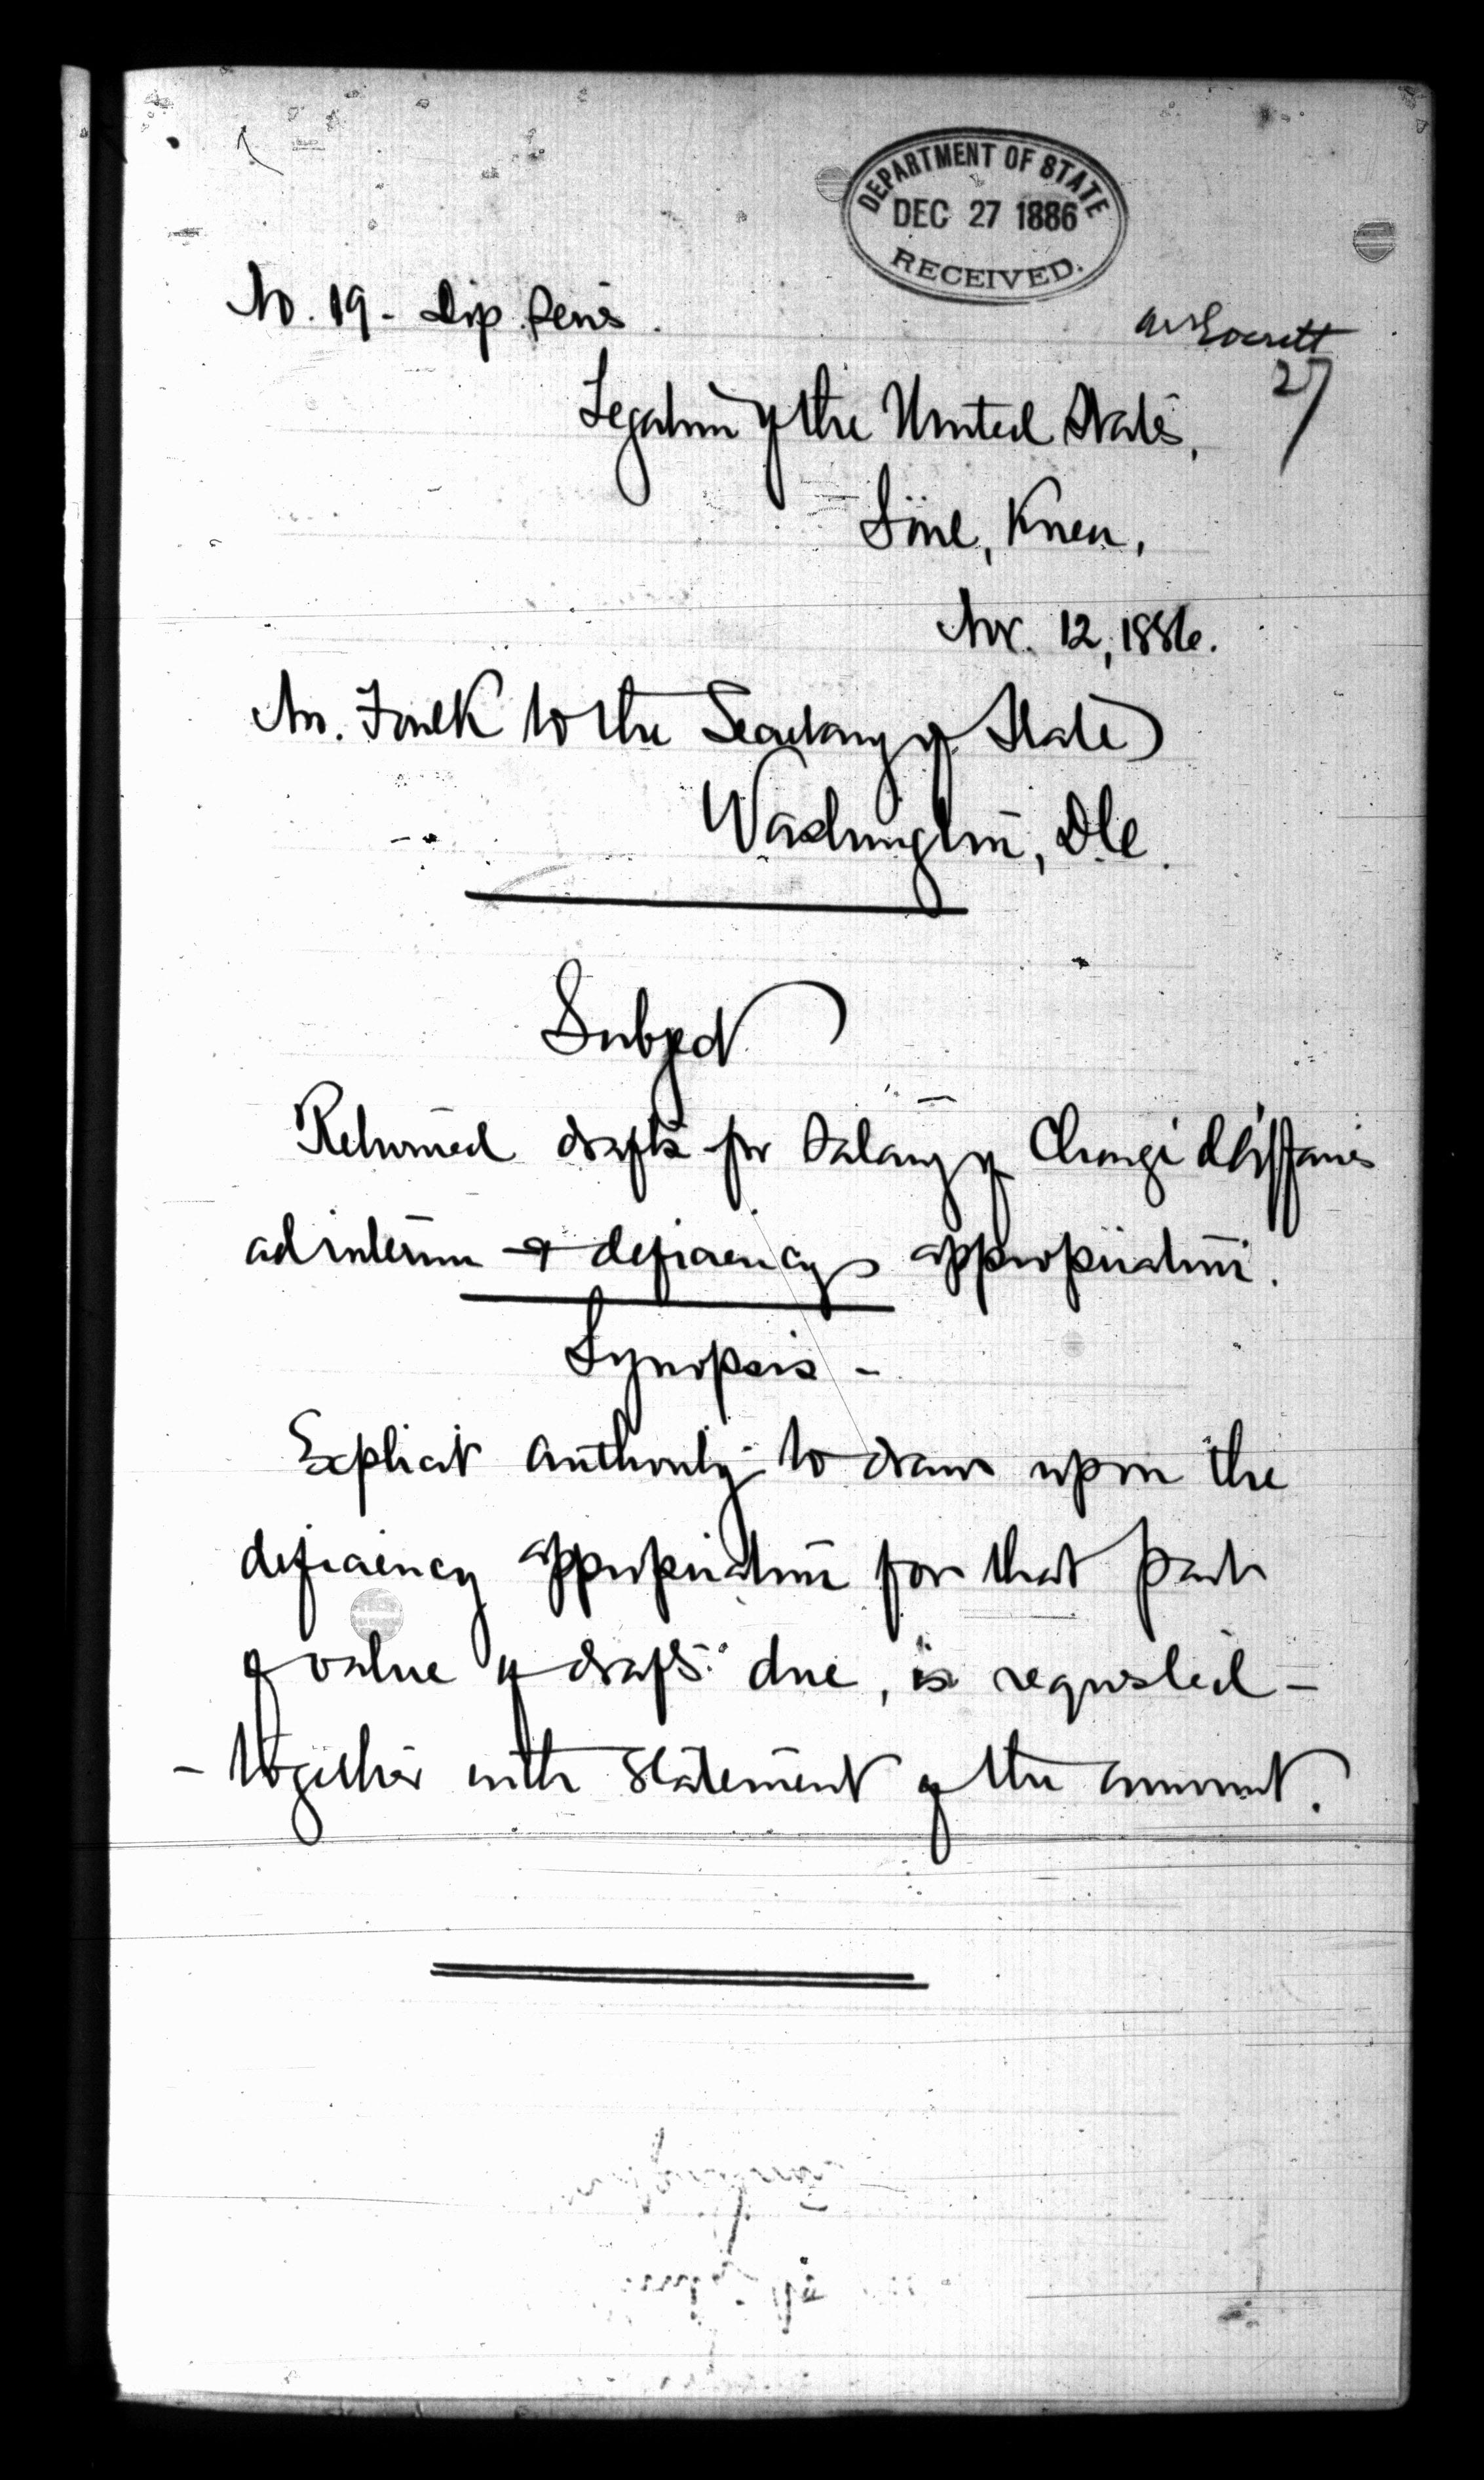 DEPARTMENT OF STATE
DEC 27 1886
RECEIVED.
No. 19 - Dip. Series.
27
Legation of the United States,
Söul, Korea,
Nov. 12, 1886.
Mr. Foulk to the Secretary of State
Washington, D.C.
Subject
Returned drafts for Salary of Chargé d'Affaires
ad interim & deficiency appropriation.
Synopsis -
Explicit authority to draw upon the
deficiency appropriation for that part
of value of drafts due, is requested -
- together with statement of the amount.